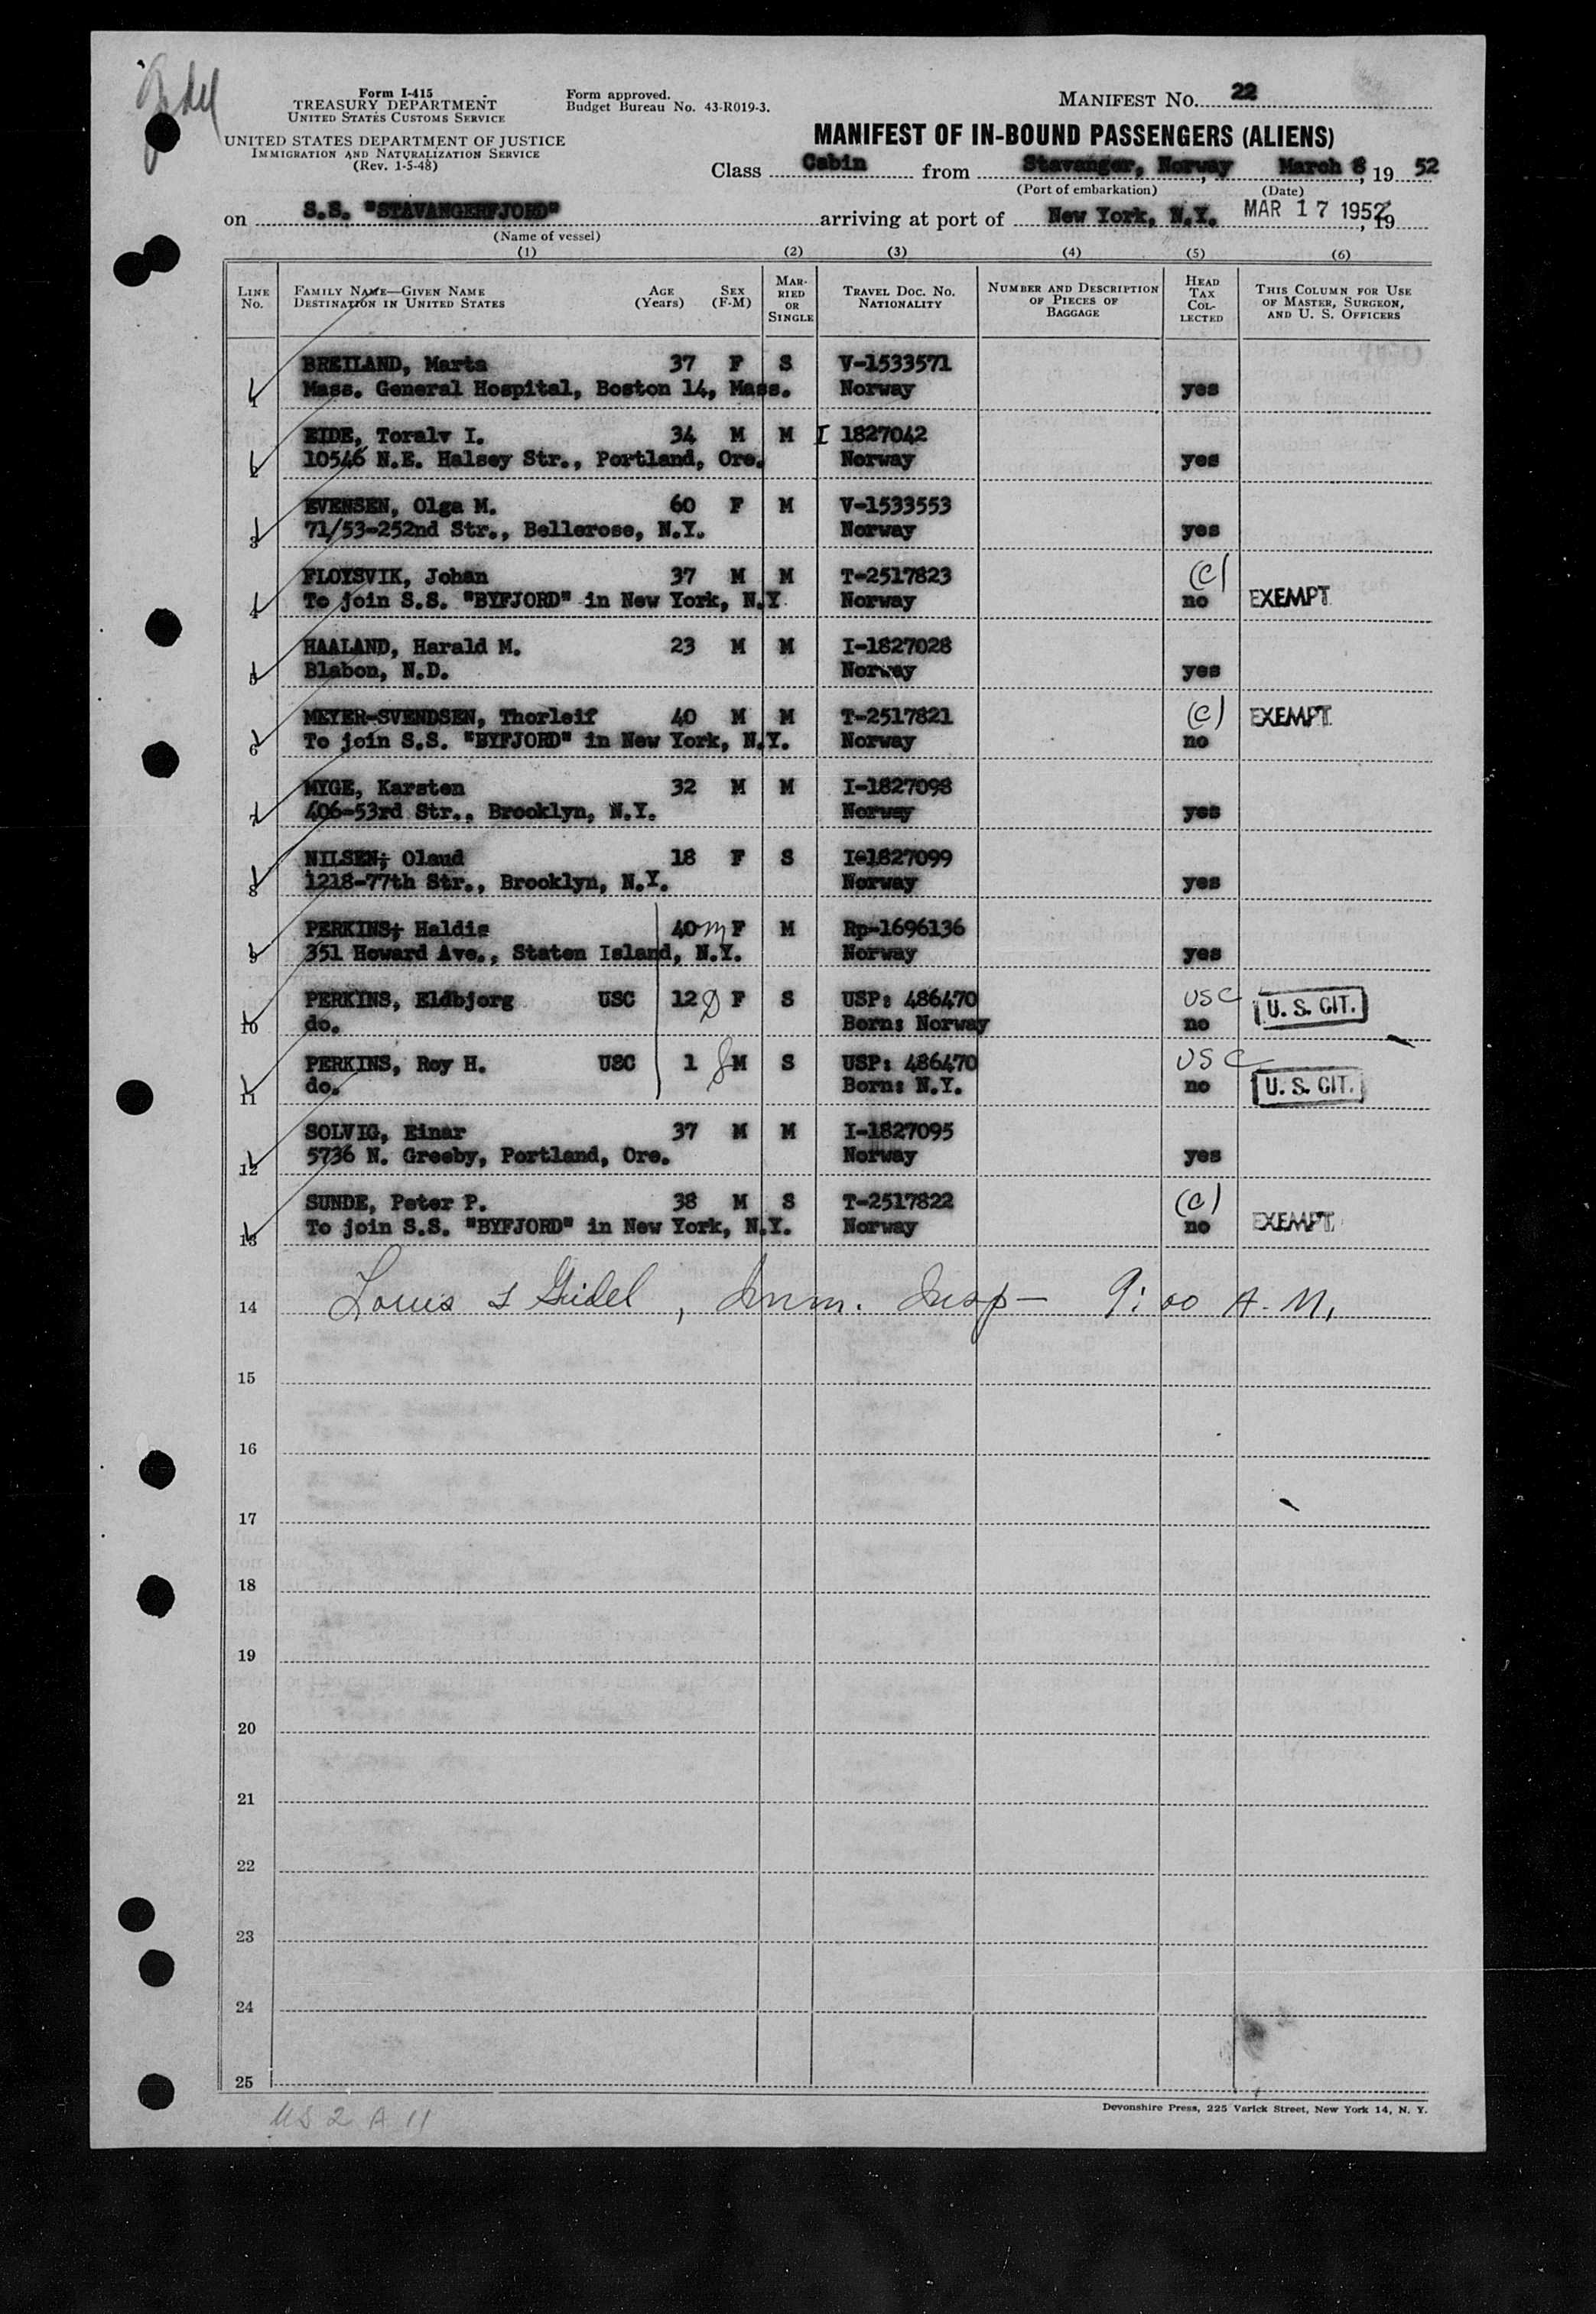 Form I-415
TREASURY DEPARTMENT
UNITED STATES CUSTOMS SERVICE
UNITED STATES DEPARTMENT OF JUSTICE
IMMIGRATION AND NATURALIZATION SERVICE
(Rev. 1-5-48)
Form approved.
Budget Bureau No. 43-R019-3.
MANIFEST NO. 22
MANIFEST OF IN-BOUND PASSENGERS (ALIENS)
Class Cabin from Stavanger, Norway, March 8, 19 52
(Port of embarkation) (Date)
on S.S. "STAVANGERFJORD" arriving at port of New York, N.Y. MAR 17 1952, 19
(Name of vessel)
(1) (2) (3) (4) (5) (6)
LINE No. FAMILY NAME—GIVEN NAME DESTINATION IN UNITED STATES AGE (Years) SEX (F-M) MARRIED OR SINGLE TRAVEL DOC. NO. NATIONALITY NUMBER AND DESCRIPTION OF PIECES OF BAGGAGE HEAD TAX COLLECTED THIS COLUMN FOR USE OF MASTER, SURGEON, AND U. S. OFFICERS
BREILAND, Marta 37 F S V-1533571
1 Mass. General Hospital, Boston 14, Mass. Norway yes
EIDE, Toralv I. 34 M M I 1827042
2 10546 N.E. Halsey Str., Portland, Ore. Norway yes
EVENSEN, Olga M. 60 F M V-1533553
3 71/53-252nd Str., Bellerose, N.Y. Norway yes
FLOYSVIK, Johan 37 M M T-2517823 (C)
4 To join S.S. "BYFJORD" in New York, N.Y Norway no EXEMPT
HAALAND, Harald M. 23 M M I-1827028
5 Blabon, N.D. Norway yes
MEYER-SVENDSEN, Thorleif 40 M M T-2517821 (C) EXEMPT
6 To join S.S. "BYFJORD" in New York, N.Y. Norway no
MYGE, Karsten 32 M M I-1827098
7 406-53rd Str., Brooklyn, N.Y. Norway yes
NILSEN, Olaud 18 F S I-1827099
8 1218-77th Str., Brooklyn, N.Y. Norway yes
PERKINS, Haldis 40 m F M Rp-1696136
9 351 Howard Ave., Staten Island, N.Y. Norway yes
PERKINS, Eldbjorg USC 12 D F S USP: 486470 USC U. S. CIT.
10 do. Born: Norway no
PERKINS, Roy H. USC 1 M S USP: 486470 USC
11 do. Born: N.Y. no U. S. CIT.
SOLVIG, Einar 37 M M I-1827095
12 5736 N. Greeby, Portland, Ore. Norway yes
SUNDE, Peter P. 38 M S T-2517822 (C)
13 To join S.S. "BYFJORD" in New York, N.Y. Norway no EXEMPT
14 Louis Gidel, Imm. Insp— 9:00 A.M.
15
16
17
18
19
20
21
22
23
24
25
Devonshire Press, 225 Varick Street, New York 14, N. Y.
US 2 A 11